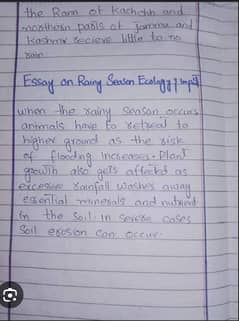 the Rann of Kachchh and
northern parts of Jammu and
Kashmir recieve little to no
rain
Essay on Rainy Season Ecology
when the rainy season occurs
animals have to retreat to
higher ground as the risk
of flooding increases. Plant
growth also gets affected as
excessive rainfall washes away
essential minerals and nutrient
in the soil. in severe cases
soil erosion can occur.